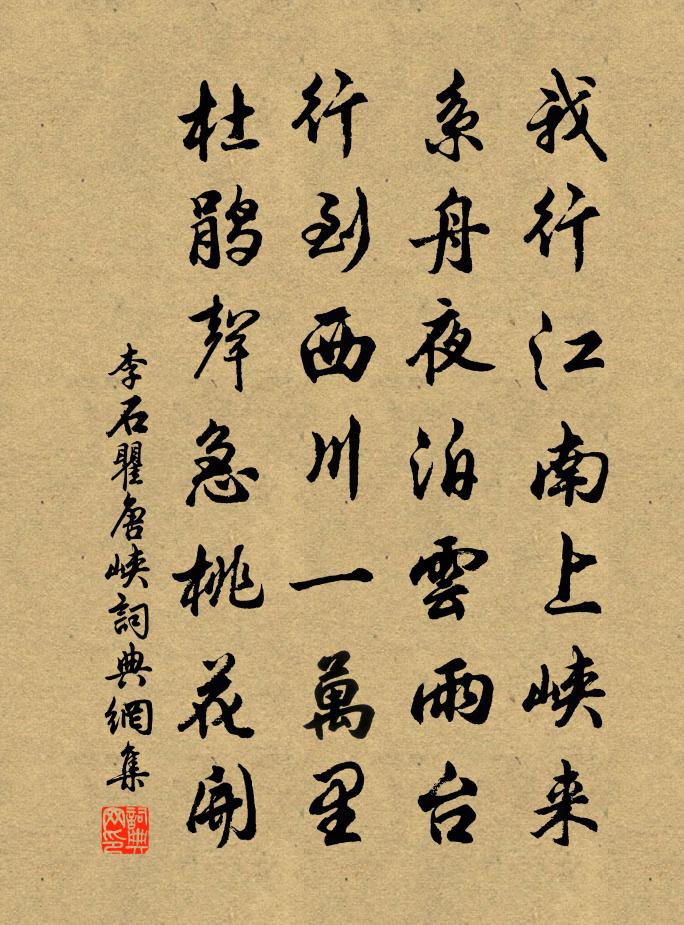 我行江南上峡来
系舟夜泊雲雨台
行到西川一萬里
杜鹃聲急桃花開
李石瞿唐峡詞典網集
詞典网印